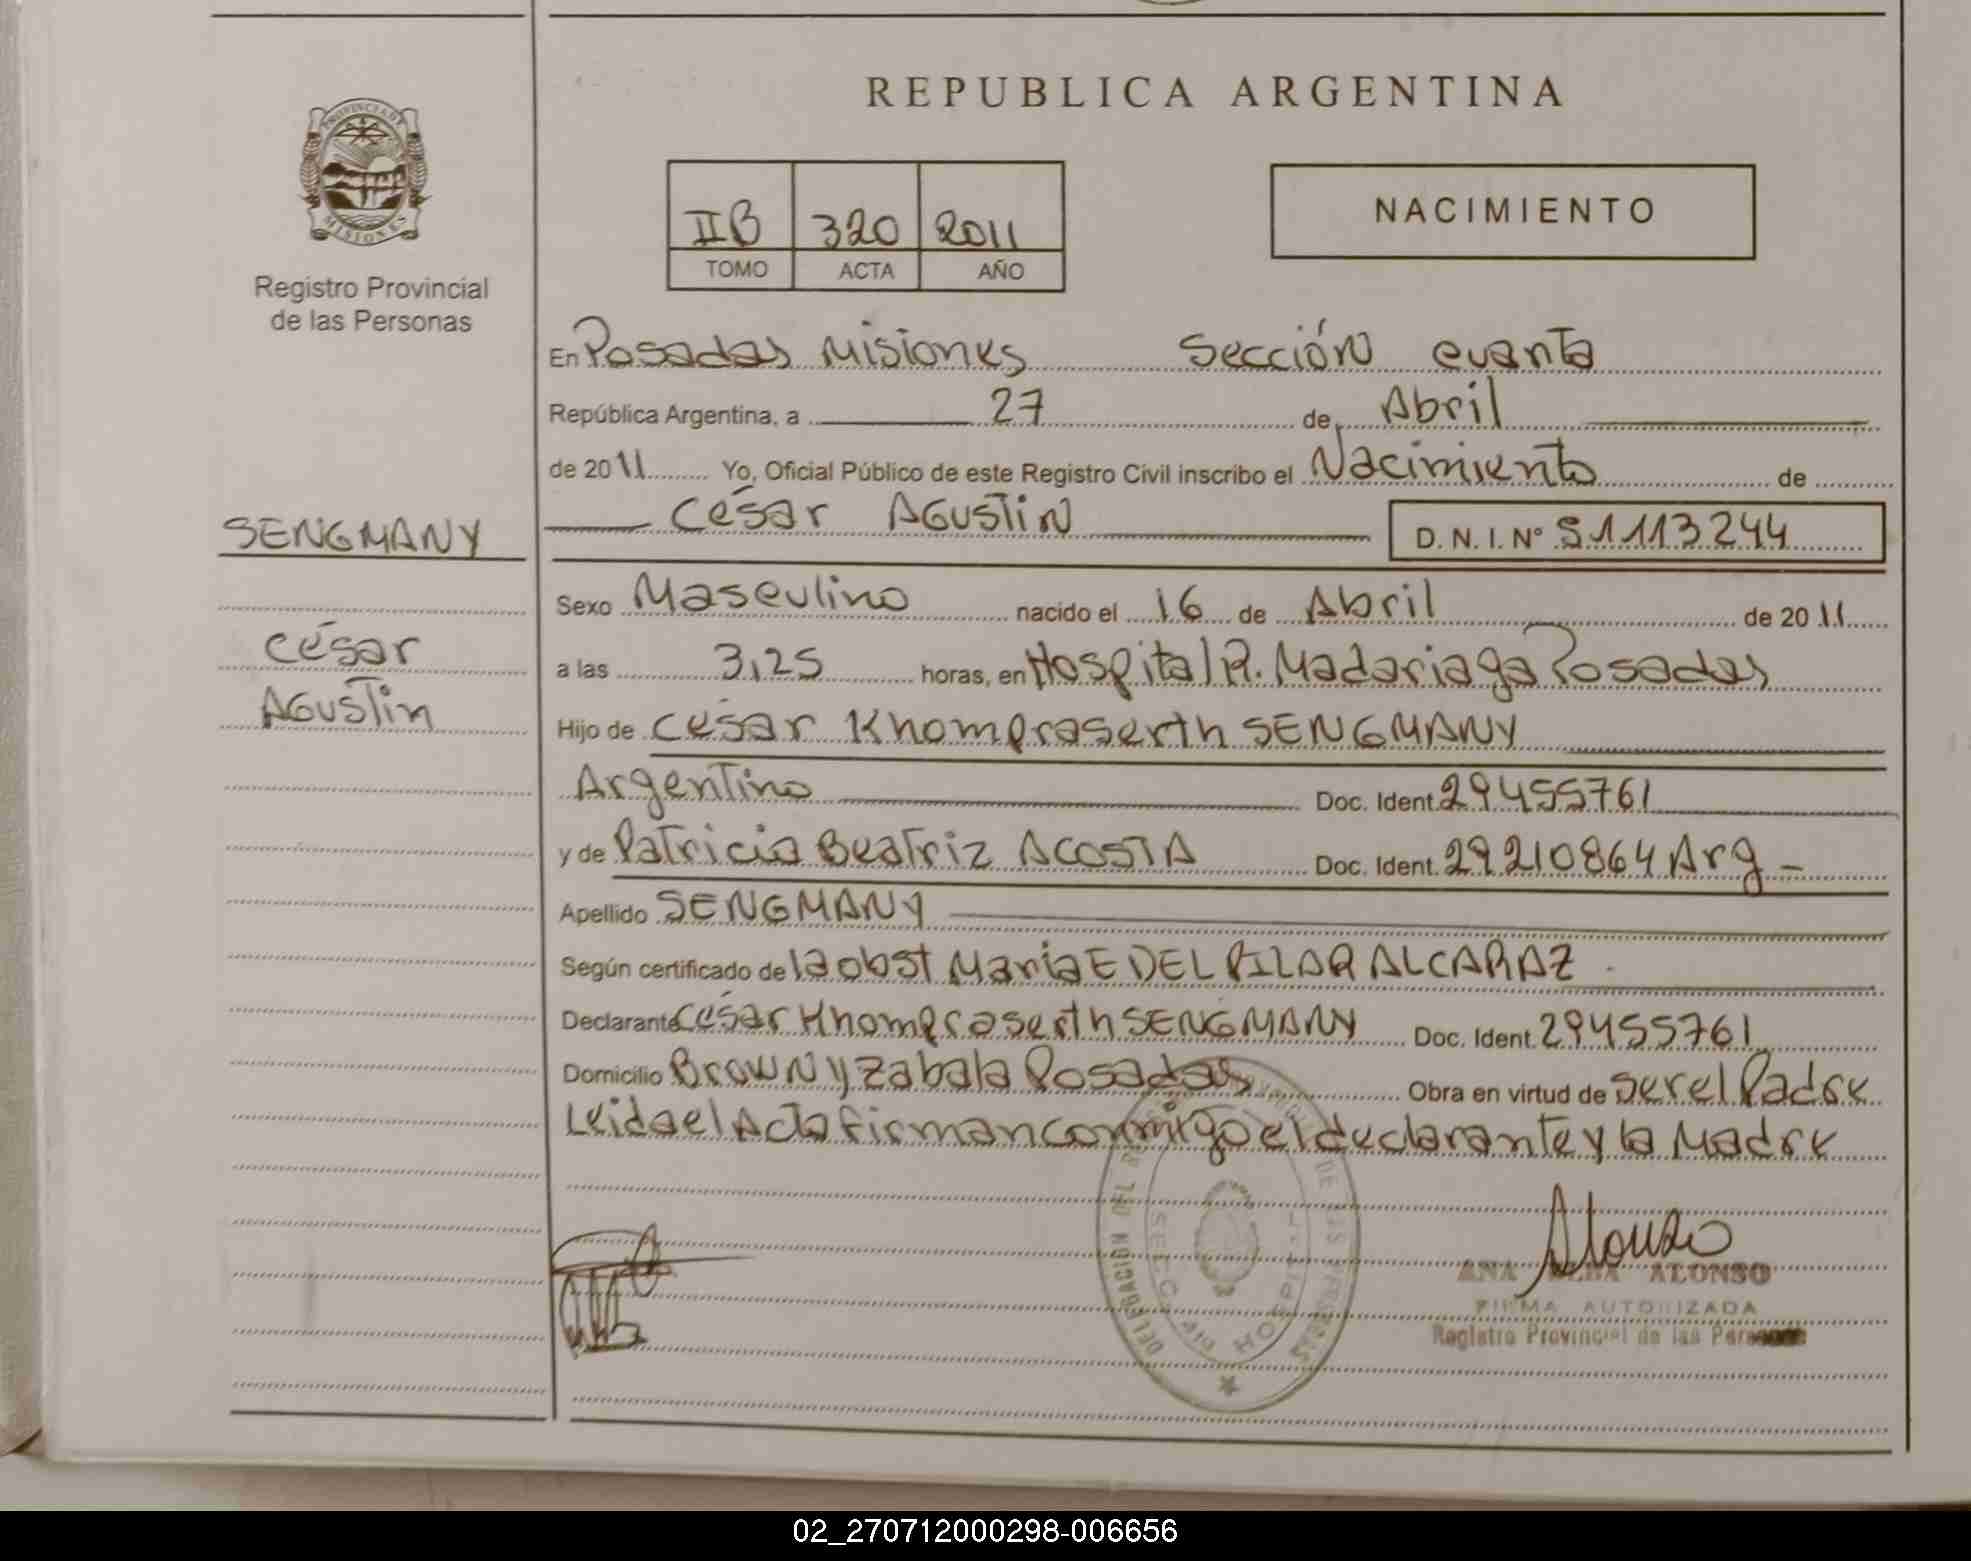 REPUBLICA ARGENTINA
PROVINCIA DE MISIONES
Registro Provincial
de las Personas
IIB 320 2011
TOMO ACTA AÑO
NACIMIENTO
En Posadas Misiones Sección cuarta
República Argentina, a 27 de Abril
de 2011 Yo, Oficial Público de este Registro Civil inscribo el Nacimiento de
César Agustin D. N. I. N° 51113244
SENGMANY
César
Agustin
Sexo Masculino nacido el 16 de Abril de 2011
a las 3,25 horas, en Hospital R. Madariaga Posadas
Hijo de César Khompraserth SENGMANY
Argentino Doc. Ident. 29455761
y de Patricia Beatriz ACOSTA Doc. Ident. 29210864 Arg -
Apellido SENGMANY
Según certificado de la obst Maria E DEL PILAR ALCARAZ
Declarante César Khompraserth SENGMANY Doc. Ident. 29455761
Domicilio Brown y Zabala Posadas Obra en virtud de ser el Padre
Leida el Acta firman conmigo el declarante y la Madre
DELEGACION DEL DE LAS PERSONAS
Alonso
ANA ALONSO
FIRMA AUTORIZADA
Registro Provincial de las Personas
02_270712000298-006656